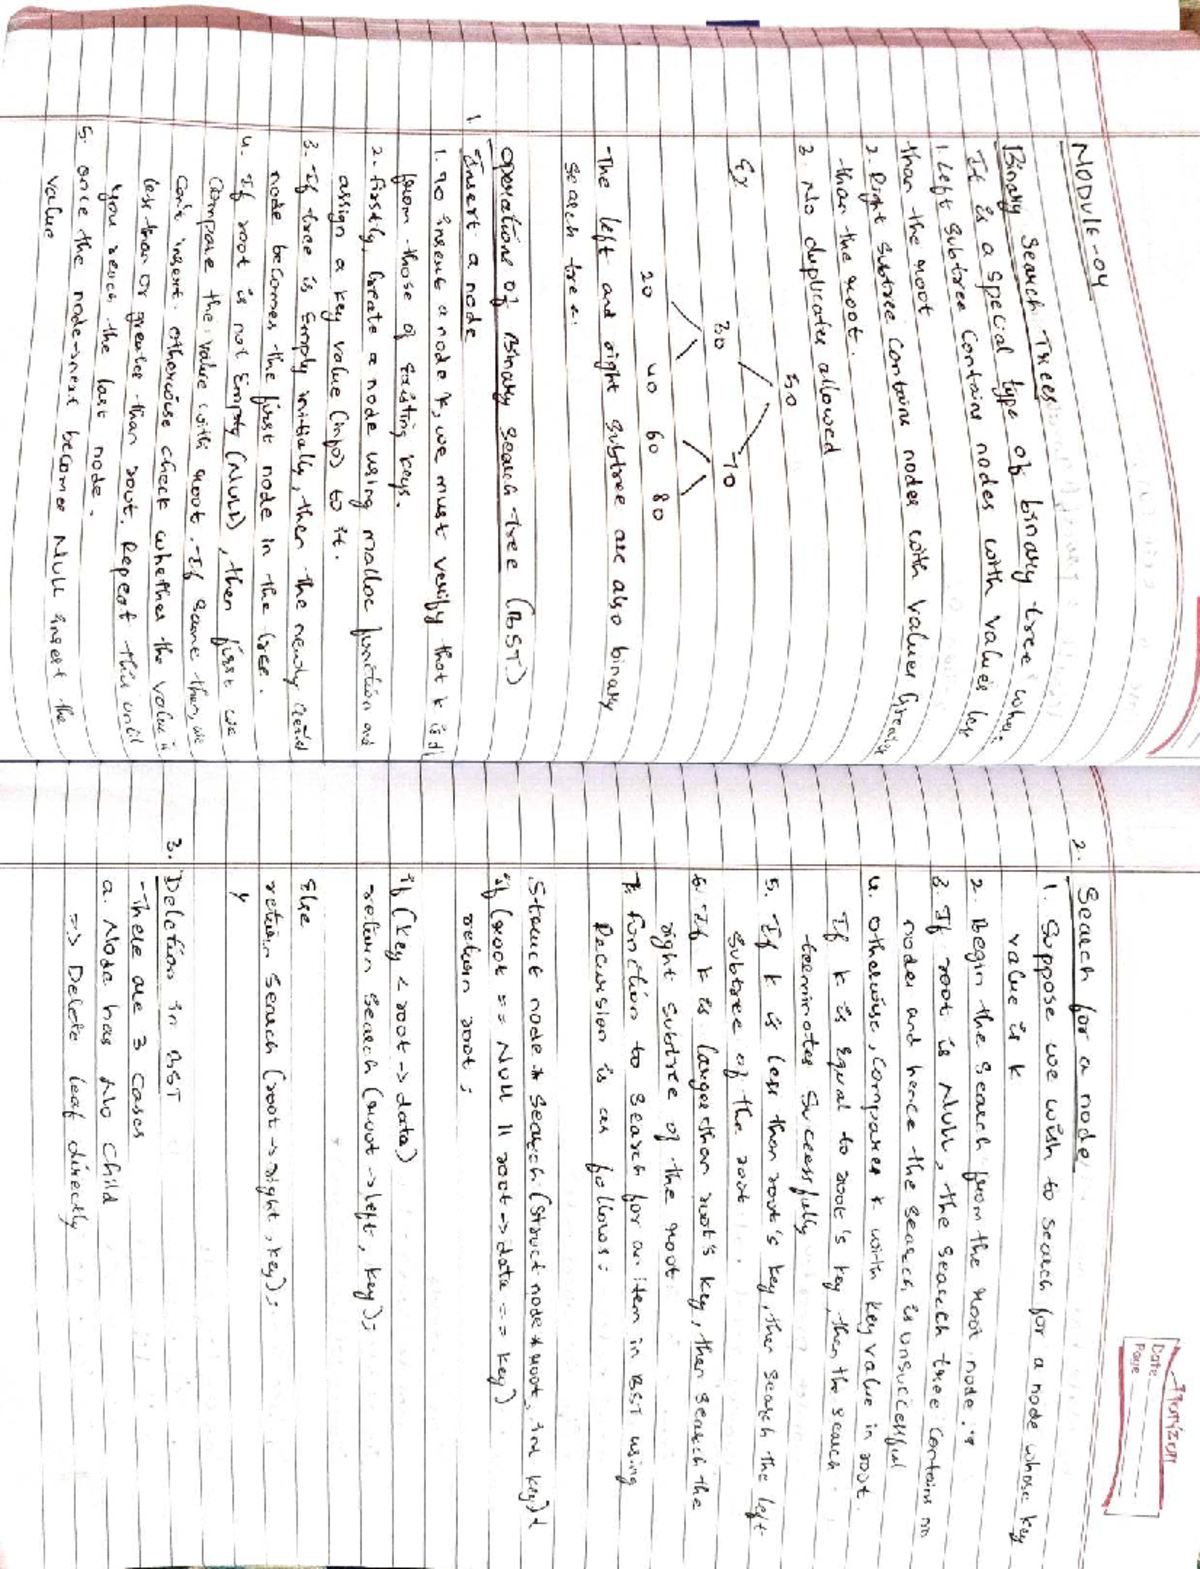 MODULE-04
Binary Search Trees
It is a special type of binary tree whos:
1. Left subtree contains nodes with values les
than the root
2. Right subtree contains nodes with values Greate
than the root.
3. No duplicates allowed
Ex
50
30 70
20 40 60 80
The left and right subtree are also binary
search tree.
Operations of Binary search tree (BST)
1. Insert a node
1. To insert a node k, we must verify that k is di
from those of existing keys.
2. firstly, Create a node using malloc function and
assign a key value (info) to it.
3. If tree is Empty initially, then the newly
node becomes the first node in the tree.
4. If root is not Empty (NULL), then first we
Compare the value with root. If same then, we
can't insert. otherwise check whether the value is
less than or greater than root. Repeat this until
you reach the last node.
5. once the node->next becomes NULL insert the
value
Horizon
Date
Page
2. Search for a node
1. Suppose we wish to search for a node whose key
value is k
2. Begin the search from the root node.
3. If root is NULL, the search tree contains no
nodes and hence the search is unsuccessful
4. otherwise, compares k with key value in root.
If k is Equal to root's key, then the search
terminates Successfully
5. If k is less than root's key, then search the left
subtree of the root.
6. If k is larger than root's key, then search the
right subtree of the root
7. function to search for an item in BST using
Recursion is as follows:
Struct node * Search (Struct node * root, int key) {
if (root == NULL || root->data == key)
return root;
if (key < root->data)
return Search (root->left, key);
Else
return Search (root->right, key);
}
3. Deletion in BST
-There are 3 cases
a. Node has No child
=> Delete leaf directly